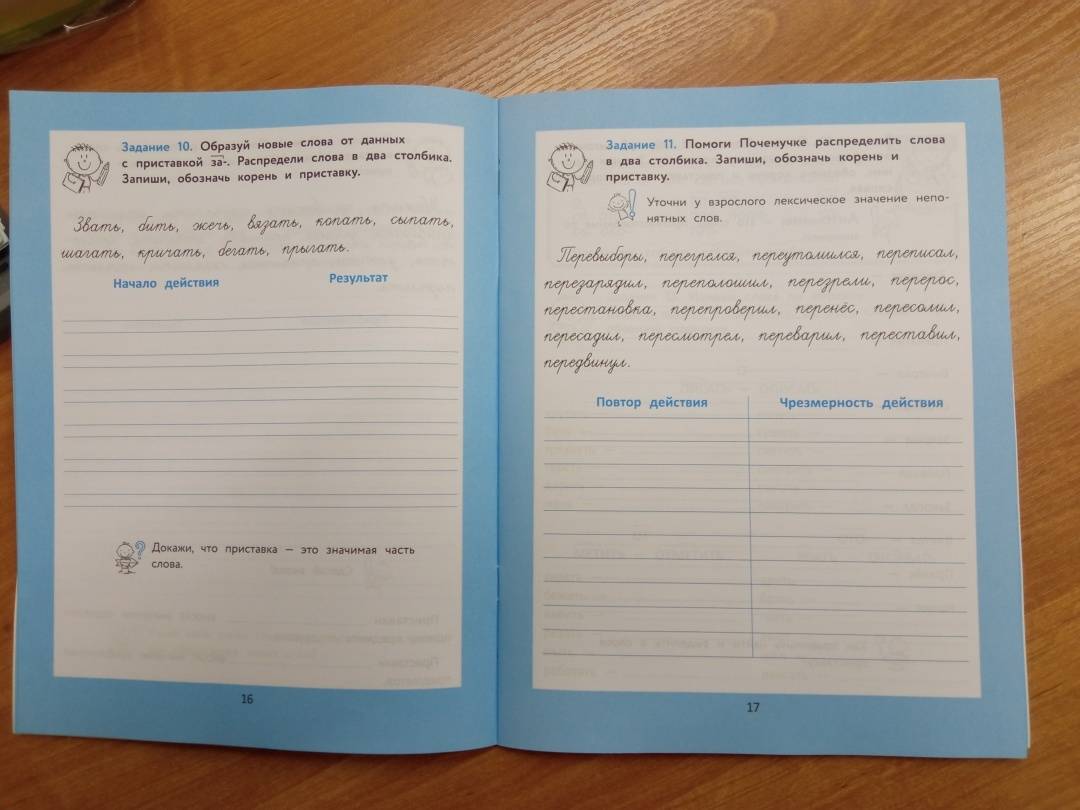 Задание 10. Образуй новые слова от данных
с приставкой за-. Распредели слова в два столбика.
Запиши, обозначь корень и приставку.
Звать, бить, жечь, вязать, копать, сыпать,
шагать, кричать, бегать, прыгать.
Начало действия Результат
Докажи, что приставка — это значимая часть
слова.
16
Задание 11. Помоги Почемучке распределить слова
в два столбика. Запиши, обозначь корень и
приставку.
Уточни у взрослого лексическое значение непо-
нятных слов.
Перевыборы, перегрелся, переутомился, переписал,
перезарядил, переполошил, перезрели, перерос,
перестановка, перепроверил, перенёс, пересолил,
пересадил, пересмотрел, переварил, переставил,
передвинул.
Повтор действия Чрезмерность действия
17